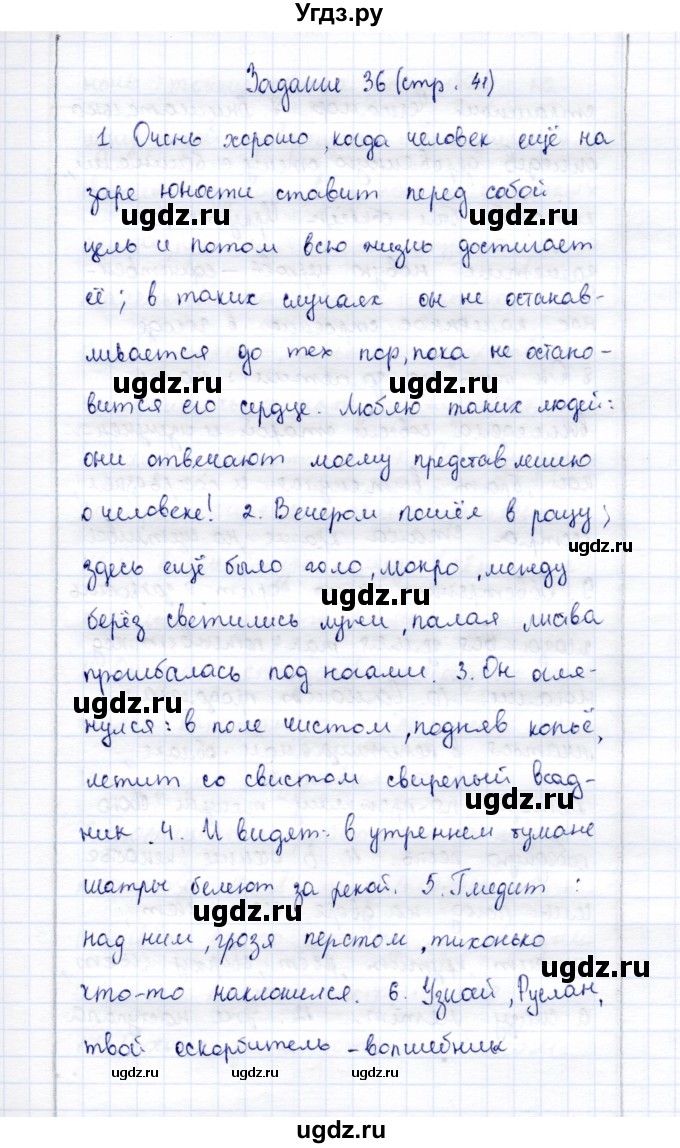 Угдз.ру
Задание 36 (стр. 41)
1 Очень хорошо, когда человек ещё на
заре юности ставит перед собой
ugdz.ru ugdz.ru
цель и потом всю жизнь достигает
её; в таких случаях он не останав-
ливается до тех пор, пока не остано-
ugdz.ru ugdz.ru
вится его сердце. Люблю таких людей:
они отвечают моему представлению
о человеке! 2. Вечером пошёл в рощу;
ugdz.ru
здесь ещё было голо, мокро, между
ugdz.ru
берёз светились лужи, палая листва
прошибалась под ногами. 3. Он огля-
ugdz.ru
нулся: в поле чистом, подняв копьё,
летит со свистом свирепый всад-
ugdz.ru
ник. 4. И видят: в утреннем тумане
шатры белеют за рекой. 5. Глядит:
ugdz.ru
над ним, грозя перстом, тихонько
ugdz.ru
что-то наклонился. 6. Узнай, Руслан,
твой оскорбитель - волшебник
ugdz.ru ugdz.ru ugdz.ru
Угдз.ру